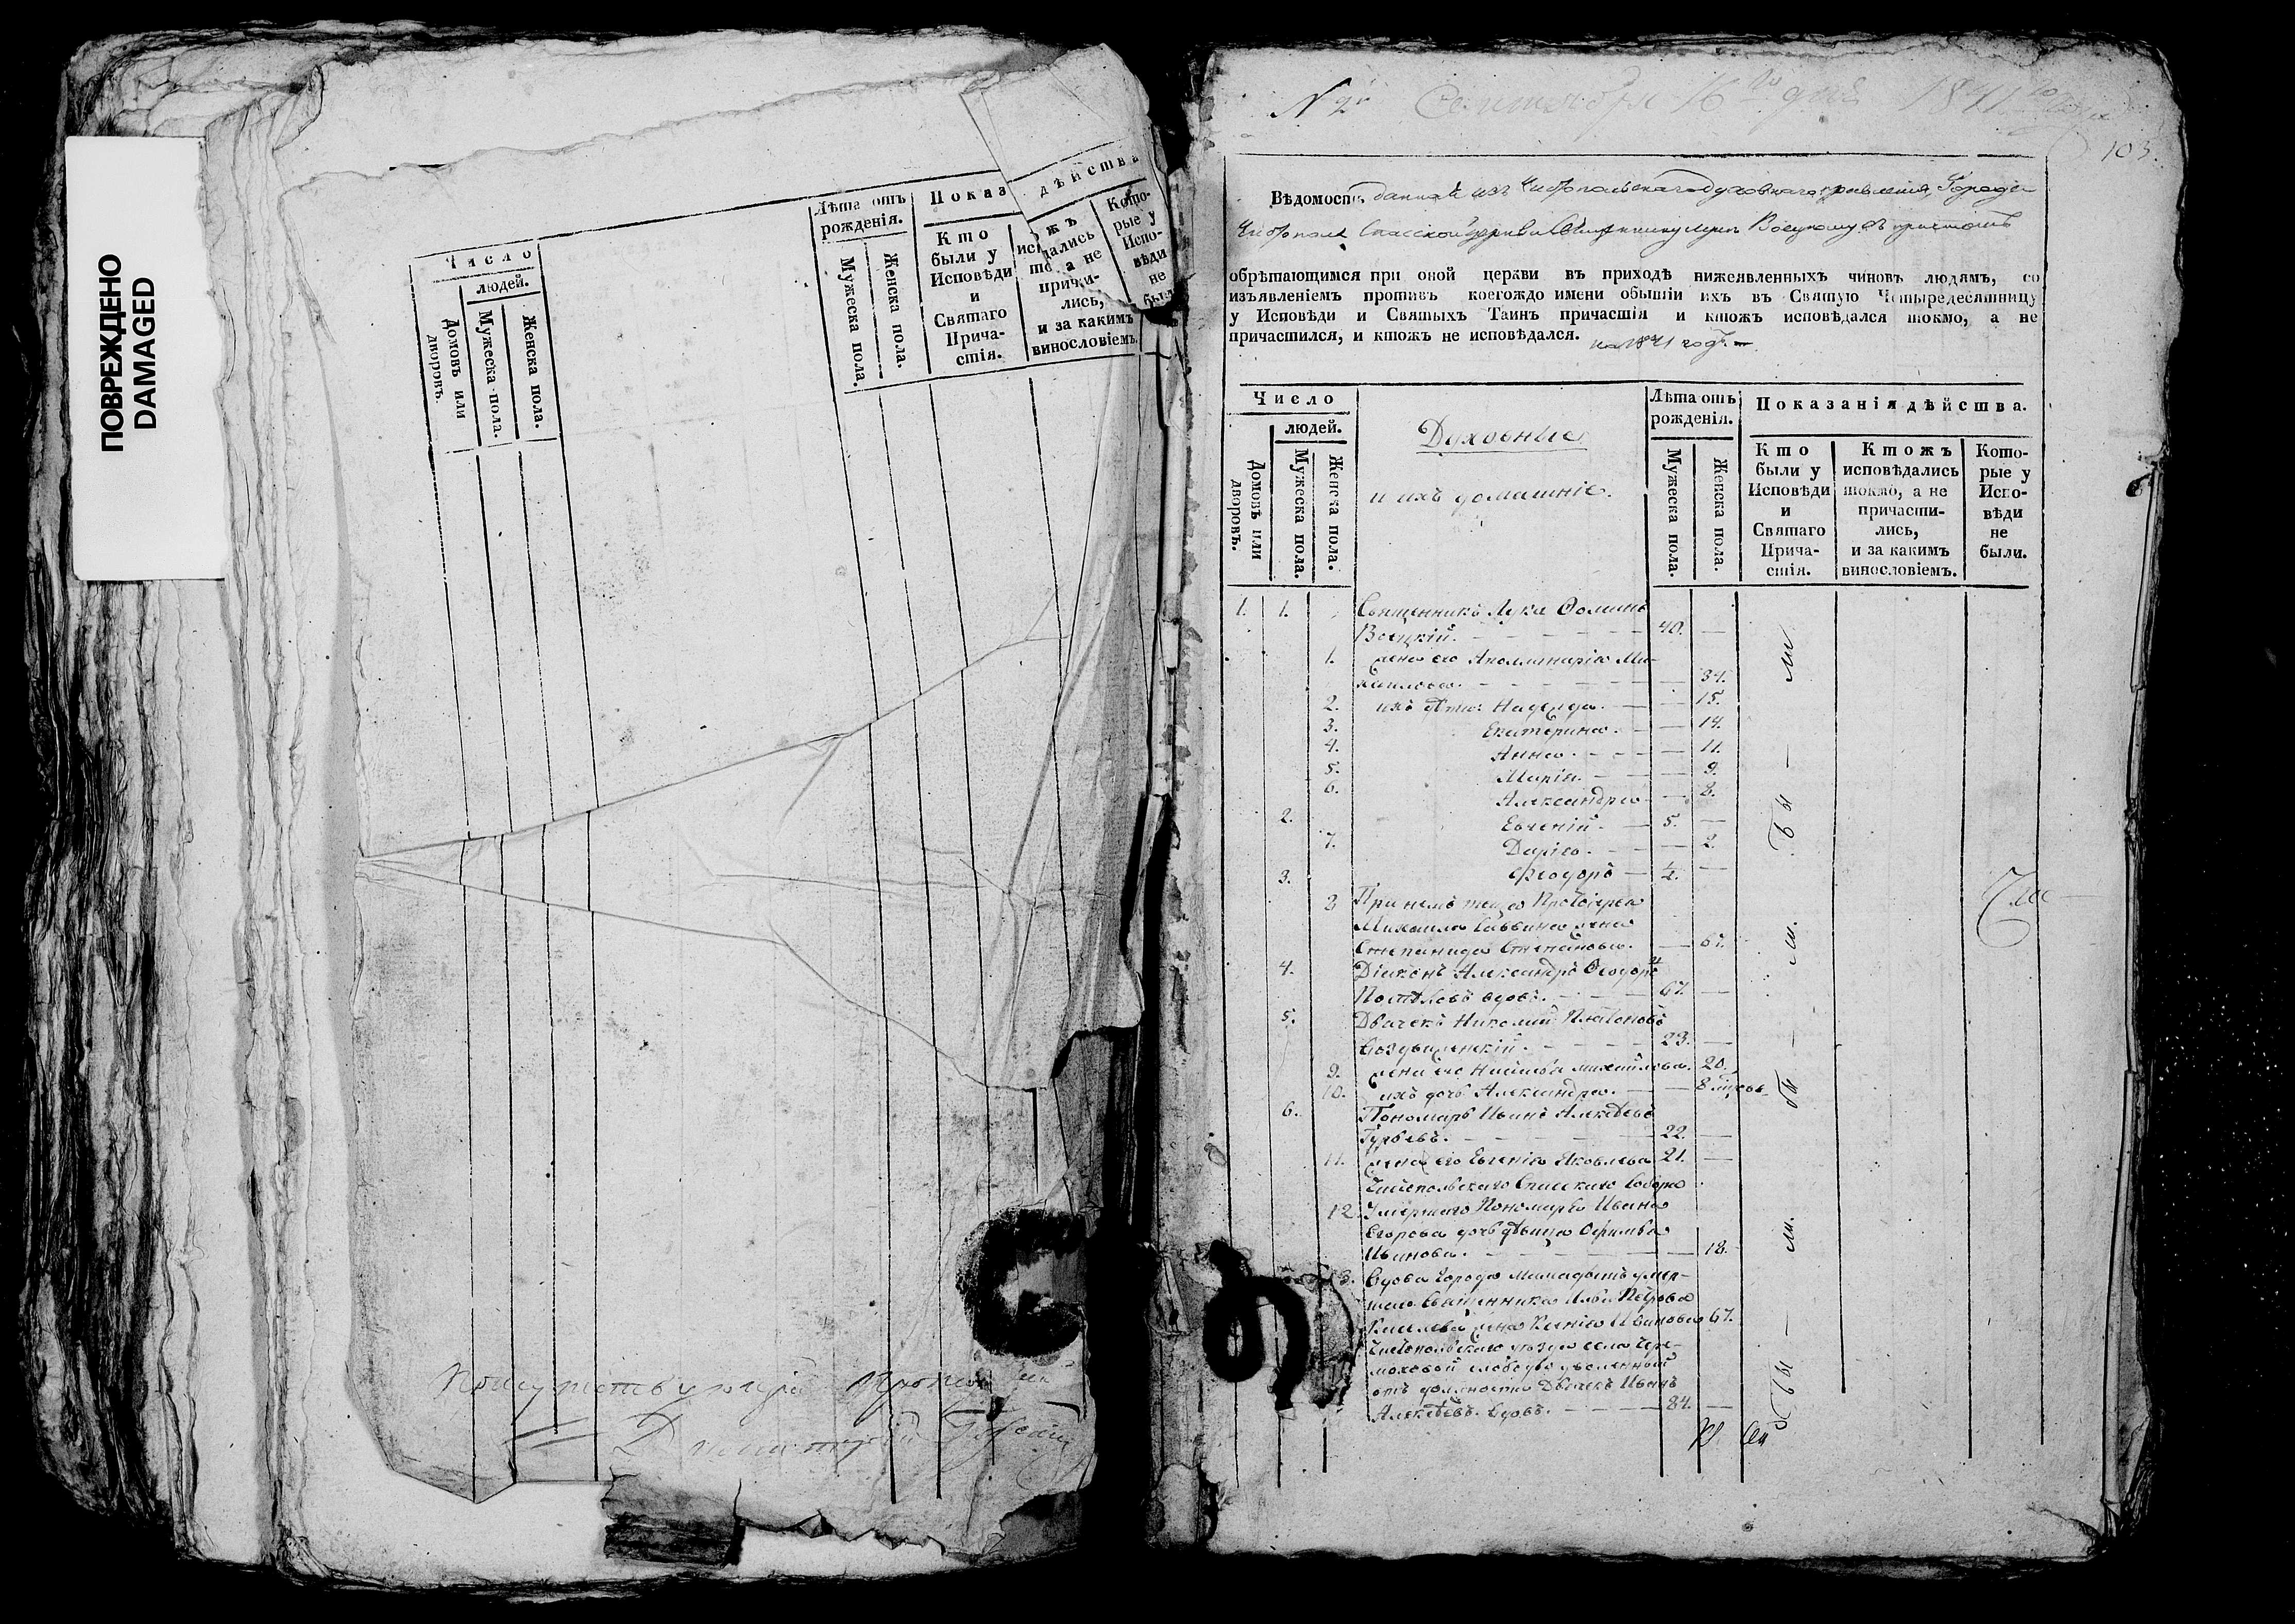 ПОВРЕЖДЕНО
DAMAGED
Число
людей.
Домовъ или дворовъ.
Мужеска пола.
Женска пола.
Лѣта отъ рожденія.
Мужеска пола.
Женска пола.
Показ
дѣйства
Кто
были у
Исповѣди
и
Святаго
Прича-
стія.
жъ
дались
а не
причи-
лись,
и за какимъ
винословіемъ.
Кото-
рые у
Испо-
вѣди
не
был
Сентября 16го дня 1841го года
103.
Вѣдомость, данная изъ Чистопольскаго духовнаго правленія, Города
Чистополя Спасской церкви Священнику Лукѣ Воецкому о
обрѣтающимся при оной церкви въ приходѣ нижеявленныхъ чиновъ людямъ, со
изъявленіемъ противъ коегождо имени обытіи ихъ въ Святую Четыредесятницу
у Исповѣди и Святыхъ Таинъ причастія и ктожъ исповѣдался токмо, а не
причастился, и ктожъ не исповѣдался. на 1841 годъ
Число
людей.
Домовъ или дворовъ.
Мужеска пола.
Женска пола.
Духовные
и ихъ домашніе.
Лѣта отъ
рожденія.
Мужеска пола.
Женска пола.
Показанія дѣйства.
Кто
были у
Исповѣди
и
Святаго
Прича-
стія.
Ктожъ
исповѣдались
токмо, а не
причасти-
лись,
и за какимъ
винословіемъ.
Кото-
рые у
Испо-
вѣди
не
были.
1. 1. Священникъ Лука Ѳоминъ
Воецкій. 40.
1. жена его Аполлинарія Ми-
хаилова. 34.
2. ихъ дѣти: Надежда. 15.
3. Екатерина. 14.
4. Анна. 11.
5. Марія. 9.
6. Александра 8.
2. Евгеній. 5.
7. Дарія. 2.
3. Феодоръ 4.
8 При немъ теща Протоіерея
Михаила Саввина жена
Степанида Степанова. 67.
4. Діаконъ Александръ Ѳеодоровъ
вдовъ. 67.
5. Дьячекъ Николай Платоновъ
Воздвиженскій. 23.
9. жена его Михайлова. 20.
10. ихъ дочь Александра. 8 мѣсяц.
6. Пономарь Иванъ Алексѣевъ
Гурьевъ. 22.
11. жена его Евгенія Яковлева 21.
Чистопольскаго Спасскаго собора
12. Умершаго Пономаря Ивана
Егорова дочь дѣвица
Иванова. 18.
13. Вдова Города Мамадышъ умер-
шаго Священника Ильи Петрова
жена Ксенія Иванова 67.
Чистопольскаго уѣзда села Чере-
моховой слободы уволенный
отъ должности Дьячекъ Иванъ
Алексѣевъ. вдовъ. 84.
бы — ли
бы — ли.
бы — ли.